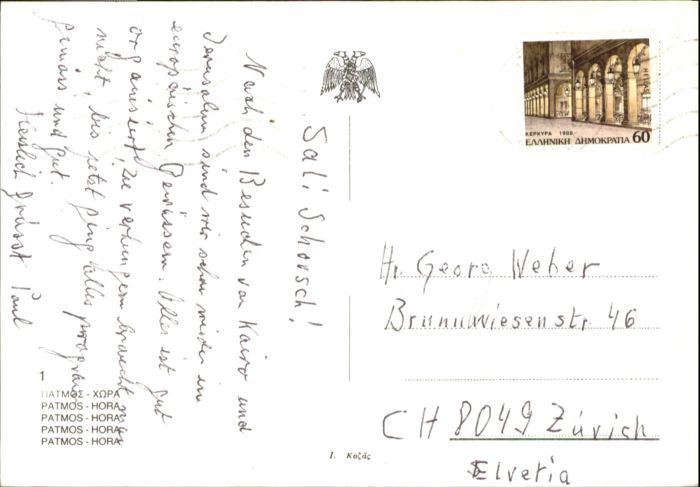 Sali Schorsch!
Nach den Besuchen von Kairo und
Jerusalem sind wir schon wieder in
europäischen Gewässern. Alles ist gut
organisiert, zu verhungern braucht man
nicht, bis jetzt ging alles programm
gemäss und gut.
Herzlich grüsst Paul
ΚΕΡΚΥΡΑ 1988
60
ΕΛΛΗΝΙΚΗ ΔΗΜΟΚΡΑΤΙΑ
Hr. Georg Weber
Brunnwiesenstr. 46
CH 8049 Zürich
Elvetia
1
ΠΑΤΜΟΣ - ΧΩΡΑ
PATMOS - HORA
PATMOS - HORA
PATMOS - HORA
PATMOS - HORA
Ι. Κοζάς